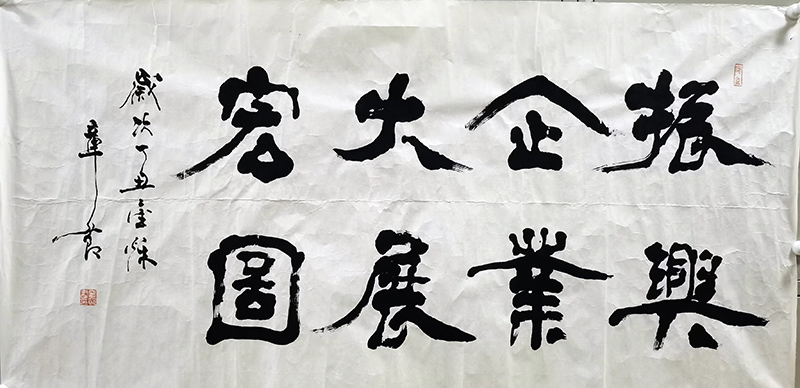 振興
企業
大展
宏圖
歲次丁丑金秋
章節